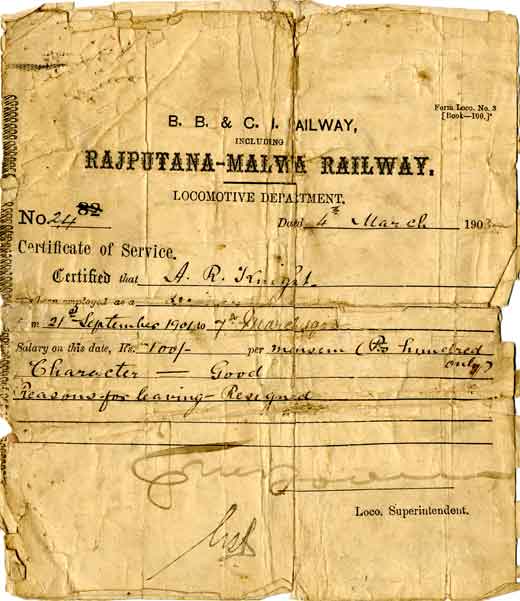 Form Loco. No. 3
[Book—100.]
B. B. & C. I. RAILWAY,
INCLUDING
RAJPUTANA-MALWA RAILWAY.
LOCOMOTIVE DEPARTMENT.
No. 24 82
Dated 4th March 1903
Certificate of Service.
Certified that A. R. Knight
been employed as a
21st September 1901 to 7th March
Salary on this date, Rs. 100/- per mensem (Rs hundred
only)
Character — Good
Reasons for leaving — Resigned
Loco. Superintendent.